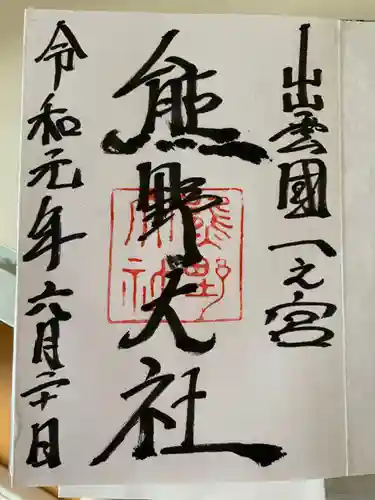 出雲國一之宮
熊野大社
令和元年六月二十日
熊野大社